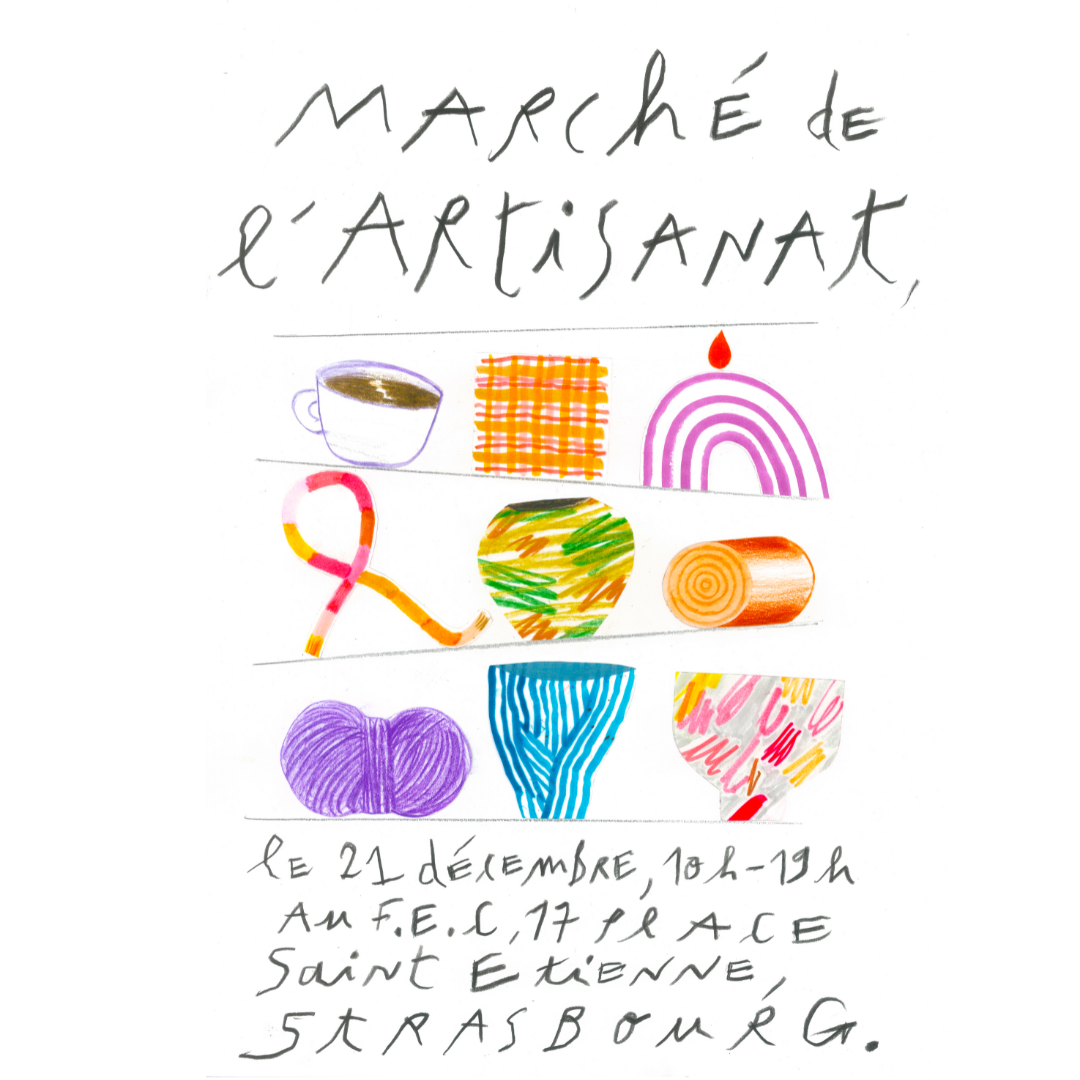 MARChÉ de
l'ARtiSANAt,
le 21 décembre, 10h-19h
Au F.E.C, 17 plACE
Saint Etienne,
StRASBouRG.